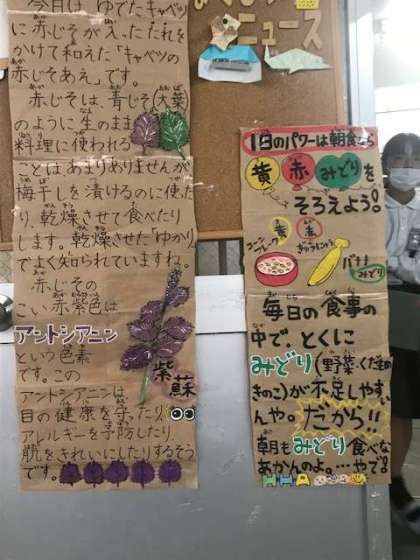 今日は、ゆでたキャベツ
に赤じそがえったたれを
かけて和えた「キャベツの
赤じそあえ」です。
赤じそは、青じそ(大葉)
のように生のまま
料理に使われる
ことはあまりありませんが
梅干しを漬けるのに使った
り、乾燥させて食べたり
します。乾燥させた「ゆかり」
でよく知られていますね。
赤じその
こい赤紫色は
アントシアニン
という色素
です。この
アントシアニンは
目の健康を守ったり
アレルギーを予防したり
肌をきれいにしたりするそう
です。
紫蘇
ニュース
1日のパワーは朝食から
黄 赤 みどりを
そろえよう!
コーンフレーク
黄
赤
ぎゅうにゅう
バナナ
みどり
毎日の食事の
中で、とくに
みどり(野菜、くだもの
きのこ)が不足しやすい
んや。だから!!
朝もみどり食べな
あかんのよ。…やで!